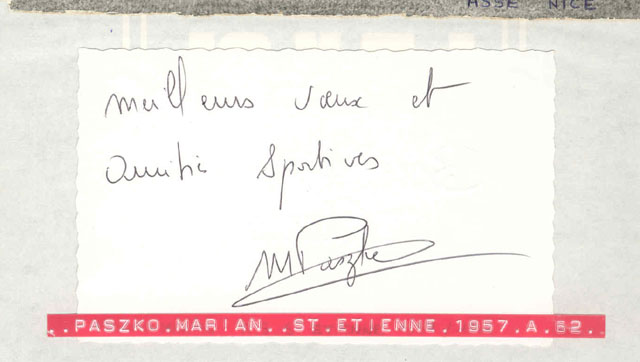 ASSE NICE
meilleurs vœux et
amitiés Sportives
M Paszko
..PASZKO.MARIAN..ST.ETIENNE.1957.A.62..